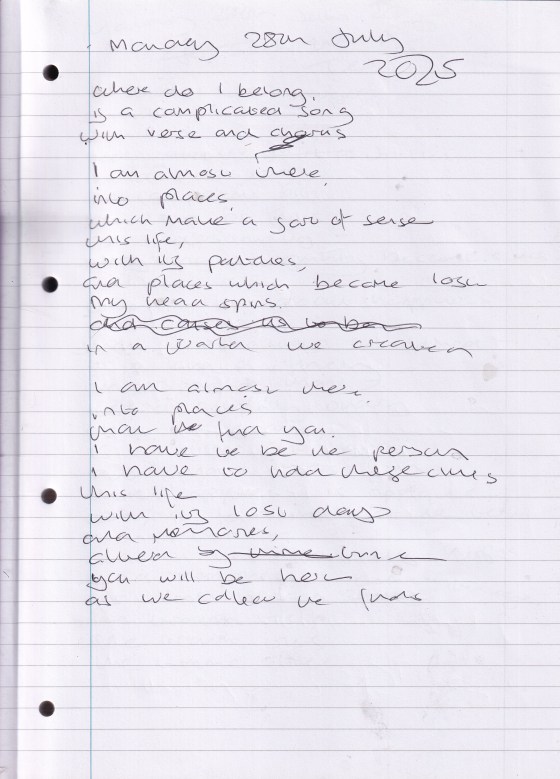 Monday 28th July
2025
where do I belong.
is a complicated song
with verse and chorus
I am almost there,
into places,
which make a sort of sense
this life,
with its
and places which become lost
my head spins.
and causes us to be
in a we created
I am almost there.
into places
that find you.
I have to be the person
I have to hold these
this life
with its lost days
and memories,
by time time
you will be here
as we collect the